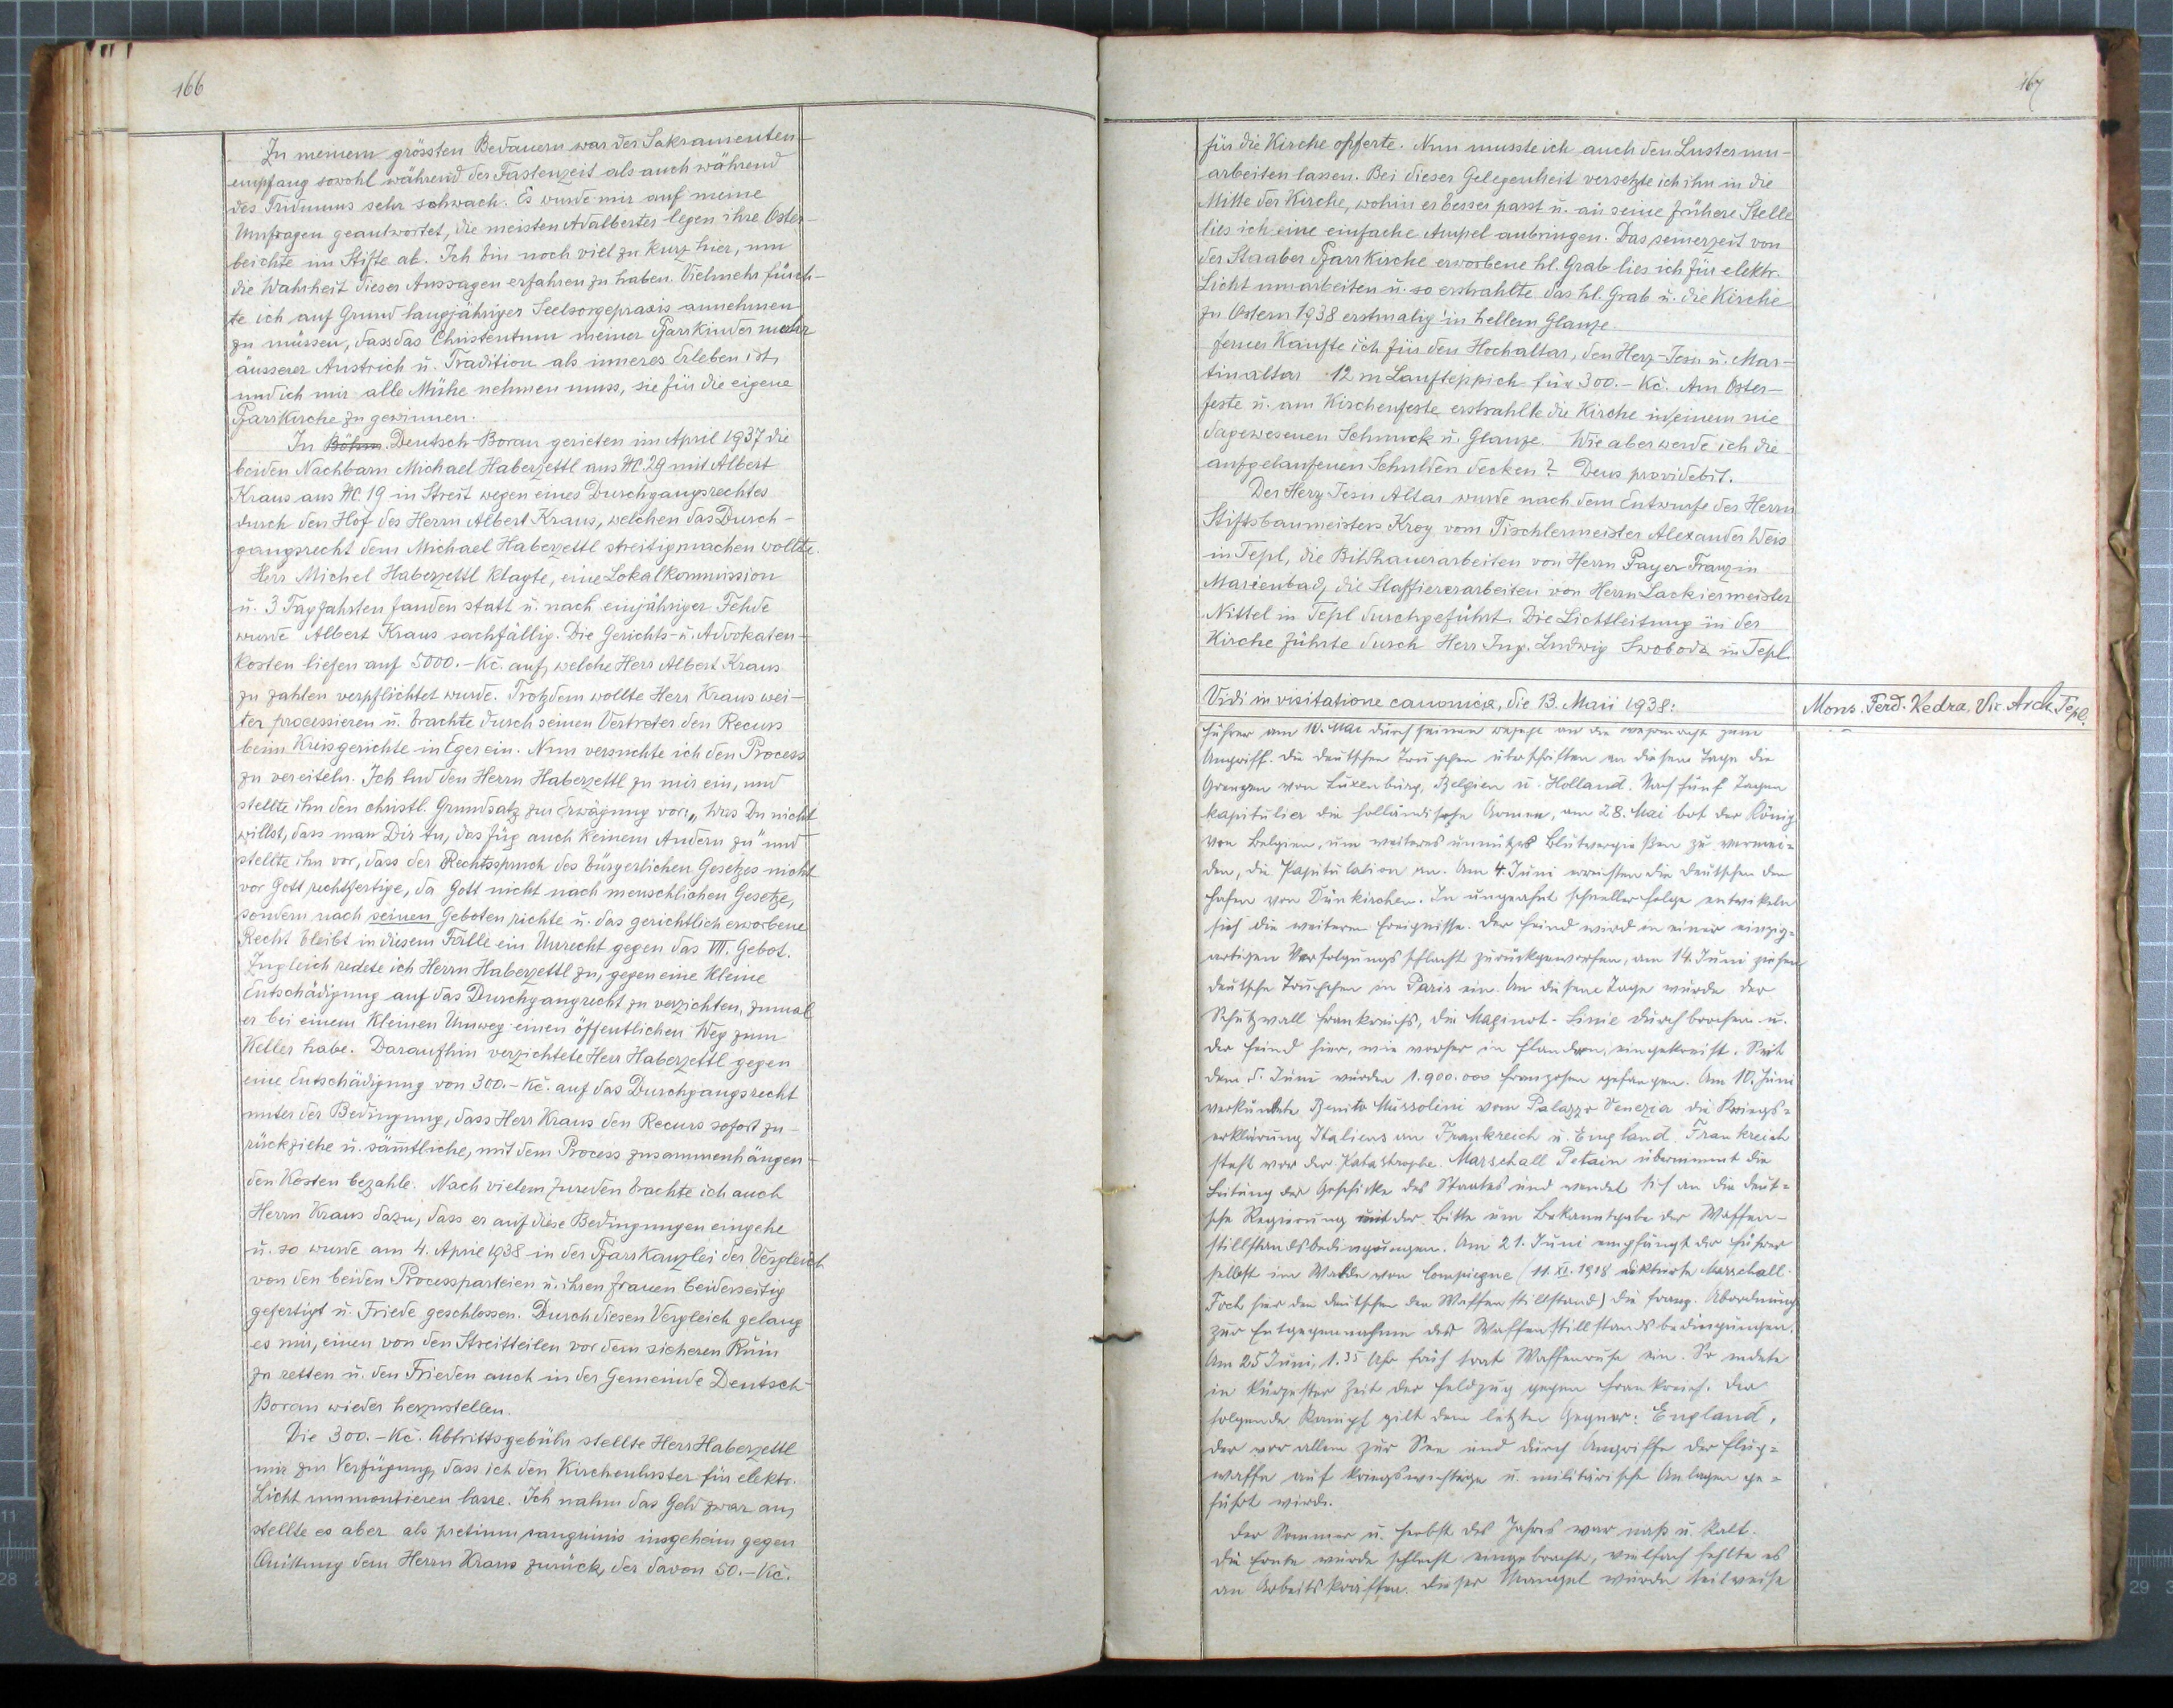 166
Zu meinem grössten Bedauern war der Sakramenten-
empfang sowohl während der Fastenzeit als auch während
des Triduums sehr schwach. Es wurde mir auf meine
Umfragen geantwortet, die meisten Adalberter legen ihre Oster-
beichte im Stifte ab. Ich bin noch viel zu kurz hier, um
die Wahrheit dieser Aussagen erfahren zu haben. Vielmehr fürch-
te ich auf Grund langjähriger Seelsorgepraxis annehmen
zu müssen, dass das Christentum meiner Pfarrkinder mehr
äusserer Anstrich u. Tradition als inneres Erleben ist,
und ich mir alle Mühe nehmen muss, sie für die eigene
Pfarrkirche zu gewinnen.
In Böhm. Deutsch-Borau gerieten im April 1937 die
beiden Nachbarn Michael Haberzettl aus NC. 29 mit Albert
Kraus aus NC. 19 in Streit wegen eines Durchgangsrechtes
durch den Hof des Herrn Albert Kraus, welchen das Durch-
gangsrecht dem Michael Haberzettl streitigmachen wollte.
Herr Michel Haberzettl klagte, eine Lokalkommission
u. 3 Tagfahrten fanden statt u. nach einjähriger Fehde
wurde Albert Kraus sachfällig. Die Gerichts- u. Advokaten-
kosten liefen auf 5000.- Kč. auf, welche Herr Albert Kraus
zu zahlen verpflichtet wurde. Trotzdem wollte Herr Kraus wei-
ter processieren u. brachte durch seinen Vertreter den Recurs
beim Kreisgerichte in Eger ein. Nun versuchte ich den Process
zu vereiteln. Ich lud den Herrn Haberzettl zu mir ein, und
stellte ihn den christl. Grundsatz zur Erwägung vor: „Was Du nicht
willst, dass man Dir tu, das füg auch keinem Andern zu" und
stellte ihn vor, dass der Rechtsspruch des bürgerlichen Gesetzes nicht
vor Gott rechtfertige, da Gott nicht nach menschlichen Gesetze,
sondern nach seinen Geboten richte u. das gerichtlich erworbene
Recht bleibt in diesem Fälle ein Unrecht gegen das VII. Gebot.
Zugleich redete ich Herrn Haberzettl zu, gegen eine kleine
Entschädigung auf das Durchgangrecht zu verzichten, zumal
er bei einem kleinen Umweg einen öffentlichen Weg zum
Keller habe. Daraufhin verzichtete Herr Haberzettl gegen
eine Entschädigung von 300.- Kč. auf das Durchgangsrecht
unter der Bedingung, dass Herr Kraus den Recurs sofort zu-
rückziehe u. sämtliche, mit dem Process zusammenhängen-
den Kosten bezahle. Nach vielem Zureden brachte ich auch
Herrn Kraus dazu, dass er auf diese Bedingungen eingehe
u. so wurde am 4. April 1938 in der Pfarrkanzlei der Vergleich
von den beiden Processparteien u. ihren Frauen beiderseitig
gefertigt u. Friede geschlossen. Durch diesen Vergleich gelang
es mir, einen von den Streitteilen vor dem sicheren Ruin
zu retten u. den Frieden auch in der Gemeinde Deutsch-
Borau wieder herzustellen.
Die 300.- Kč. Abtrittsgebühr stellte Herr Haberzettl
mir zur Verfügung, dass ich den Kirchenluster für elektr.
Licht ummontieren lasse. Ich nahm das Geld zwar an,
stellte es aber als pretium sanguinis insgeheim gegen
Quittung dem Herrn Kraus zurück, der davon 50.- Kč.
167
für die Kirche opferte. Nun musste ich auch den Luster um-
arbeiten lassen. Bei dieser Gelegenheit versetzte ich ihn in die
Mitte der Kirche, wohin er besser passt u. an seine frühere Stelle
lies ich eine einfache Ampel anbringen. Das seinerzeit von
der Staaber Pfarrkirche erworbene hl. Grab lies ich für elektr.
Licht umarbeiten u. so erstrahlte das hl. Grab u. die Kirche
zu Ostern 1938 erstmalig in hellem Glanze.
Ferner kaufte ich für den Hochaltar, den Herz-Jesu u. Mar-
tinaltar 12 m Laufteppich für 300.- Kč. Am Oster-
feste u. am Kirchenfeste erstrahlte die Kirche in einem nie
dagewesenen Schmuck u. Glanze. Wie aber werde ich die
aufgelaufenen Schulden decken? Deus providebit.
Der Herz Jesu Altar wurde nach dem Entwurfe des Herrn
Stiftsbaumeisters Kroy vom Tischlermeister Alexander Weis
in Tepl, die Bildhauerarbeiten von Herrn Payer Franz in
Marienbad, die Staffiererarbeiten von Herrn Lackiermeister
Nittel in Tepl durchgeführt. Die Lichtleitung in der
Kirche führte durch Herr Ing. Ludwig Swoboda in Tepl.
Vidi in visitatione canonica, die 13. Maii 1938: Mons. Ferd. Kedra, Vic. Arch. Tepl.
Führer am 10. Mai durch seinen Befehl an die Wehrmacht zum
Angriff. Die deutschen Truppen überschritten an diesem Tage die
Grenzen von Luxenburg, Belgien u. Holland. Nach fünf Tagen
kapitulier die holländische Armee, am 28. Mai bot der König
von Belgien, um weiteres unnützes Blutvergießen zu vermei-
den, die Kapitulation an. Am 4. Juni erreichten die Deutschen den
Hafen von Dünkirchen. In ungeahnt schneller Folge entwikeln
sich die weiteren Ereignisse. Der Feind wird in einer einzig-
artigen Verfolgungsschlacht zurückgeworfen, am 14. Juni ziehen
deutsche Truppen in Paris ein. An diesem Tage wurde der
Schutzwall Frankreichs, die Maginot-Linie durchbrochen u.
der Feind hier, wie vorher in Flandern, eingekreist. Seit
dem 5. Juni wurden 1.900.000 Franzosen gefangen. Am 10. Juni
verkündete Benito Mussolini vom Palazzo Venezia die Kriegs-
erklärung Italiens an Frankreich u. England. Frankreich
steht vor der Katastrophe. Marschall Petain übernimmt die
Leitung der Geschicke des Staates und wendet sich an die deut-
sche Regierung mit der Bitte um Bekanntgabe der Waffen-
stillstandsbedingungen. Am 21. Juni empfängt der Führer
selbst im Walde von Compiegne (11. XI. 1918 diktierte Marschall
Foch hier den Deutschen den Waffenstillstand) die franz. Abordnung
zur Entgegennahme der Waffenstillstandsbedingungen.
Am 25 Juni, 1.35 Uhr früh trat Waffenruhe ein. So endete
in kürzester Zeit der Feldzug gegen Frankreich. Der
folgende Kampf gilt dem letzten Gegner: England,
der vor allem zur See und durch Angriffe der Flug-
waffe auf kriegswichtige u. militärische Anlagen ge-
führt wird.
Der Sommer u. Herbst des Jahres war naß u. kalt.
Die Ernte wurde schlecht eingebracht, vielfach fehlte es
an Arbeitskräften. Dieser Mangel wurde teilweise